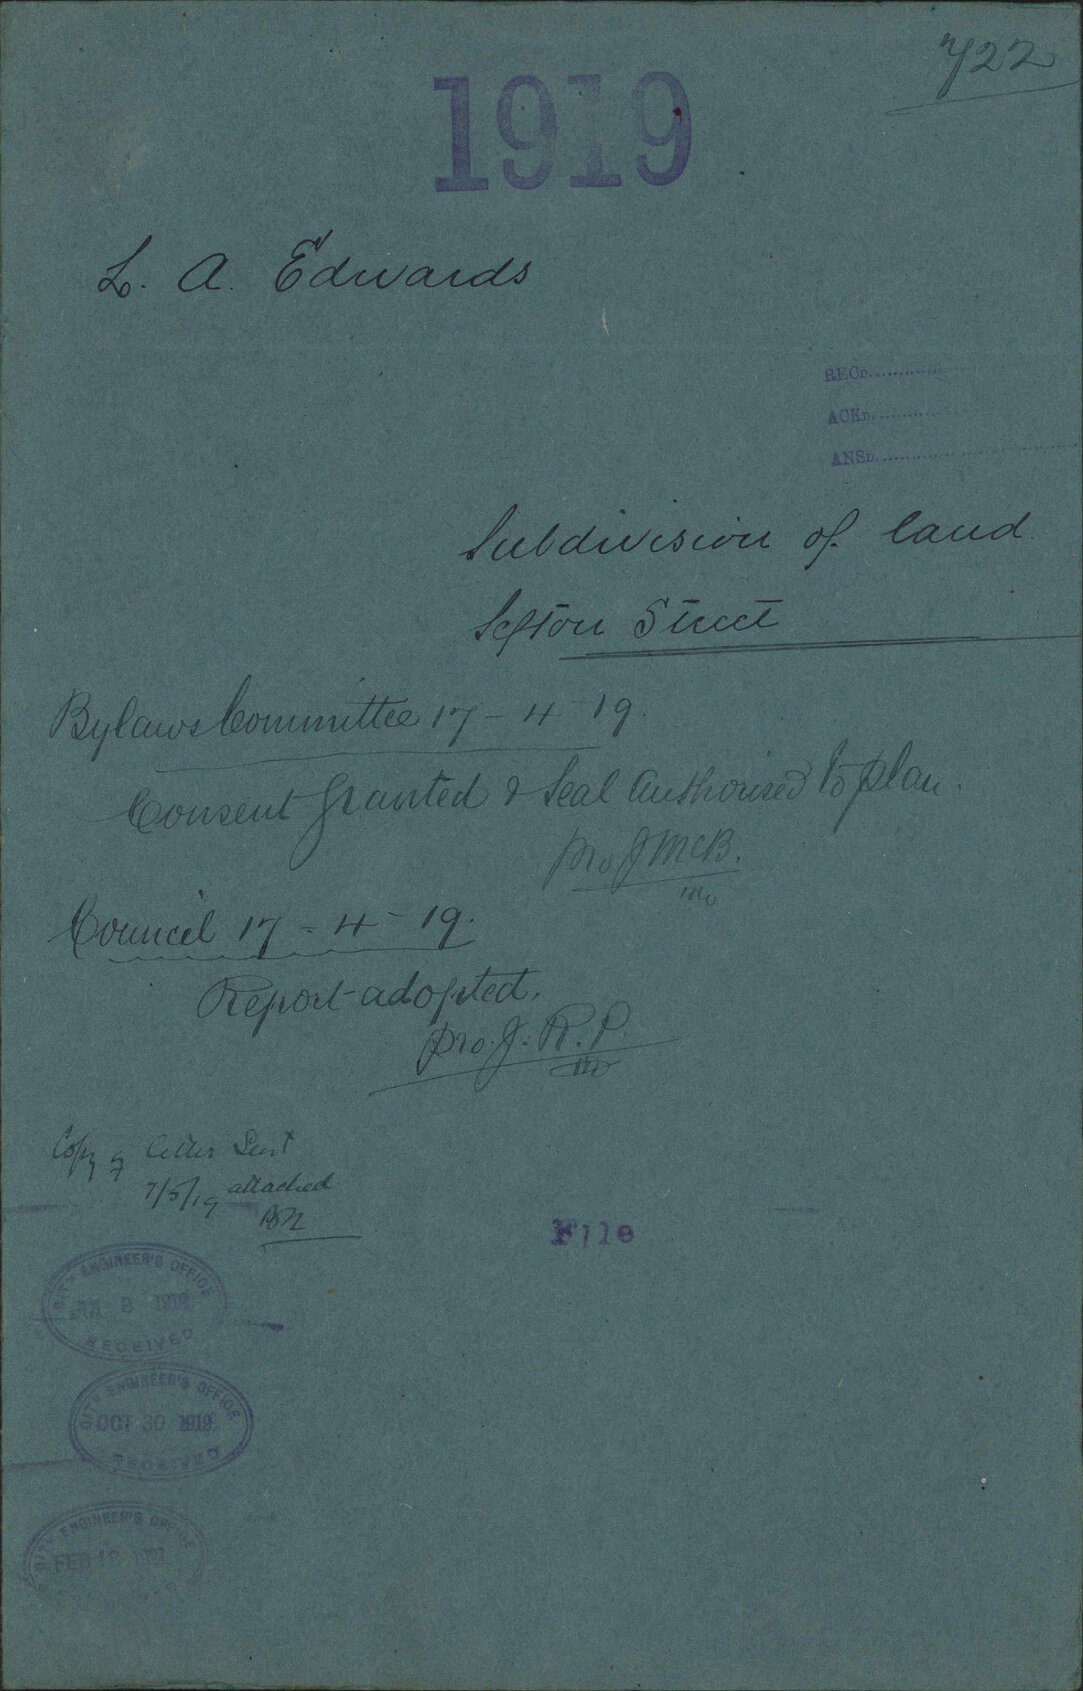 722
1919
L. A. Edwards
RECD
ACKD
ANSD
Subdivision of land
Sefton Street
Bylaws Committee 17-4-19.
Consent granted & Seal authorised to plan.
pro J McB.
Council 17-4-19.
Report adopted.
pro. J. R. P.
Copy of letter sent
7/5/19 attached
File
CITY ENGINEER'S OFFICE
1919
RECEIVED
CITY ENGINEER'S OFFICE
OCT 30 1919
RECEIVED
CITY ENGINEER'S OFFICE
FEB 1921